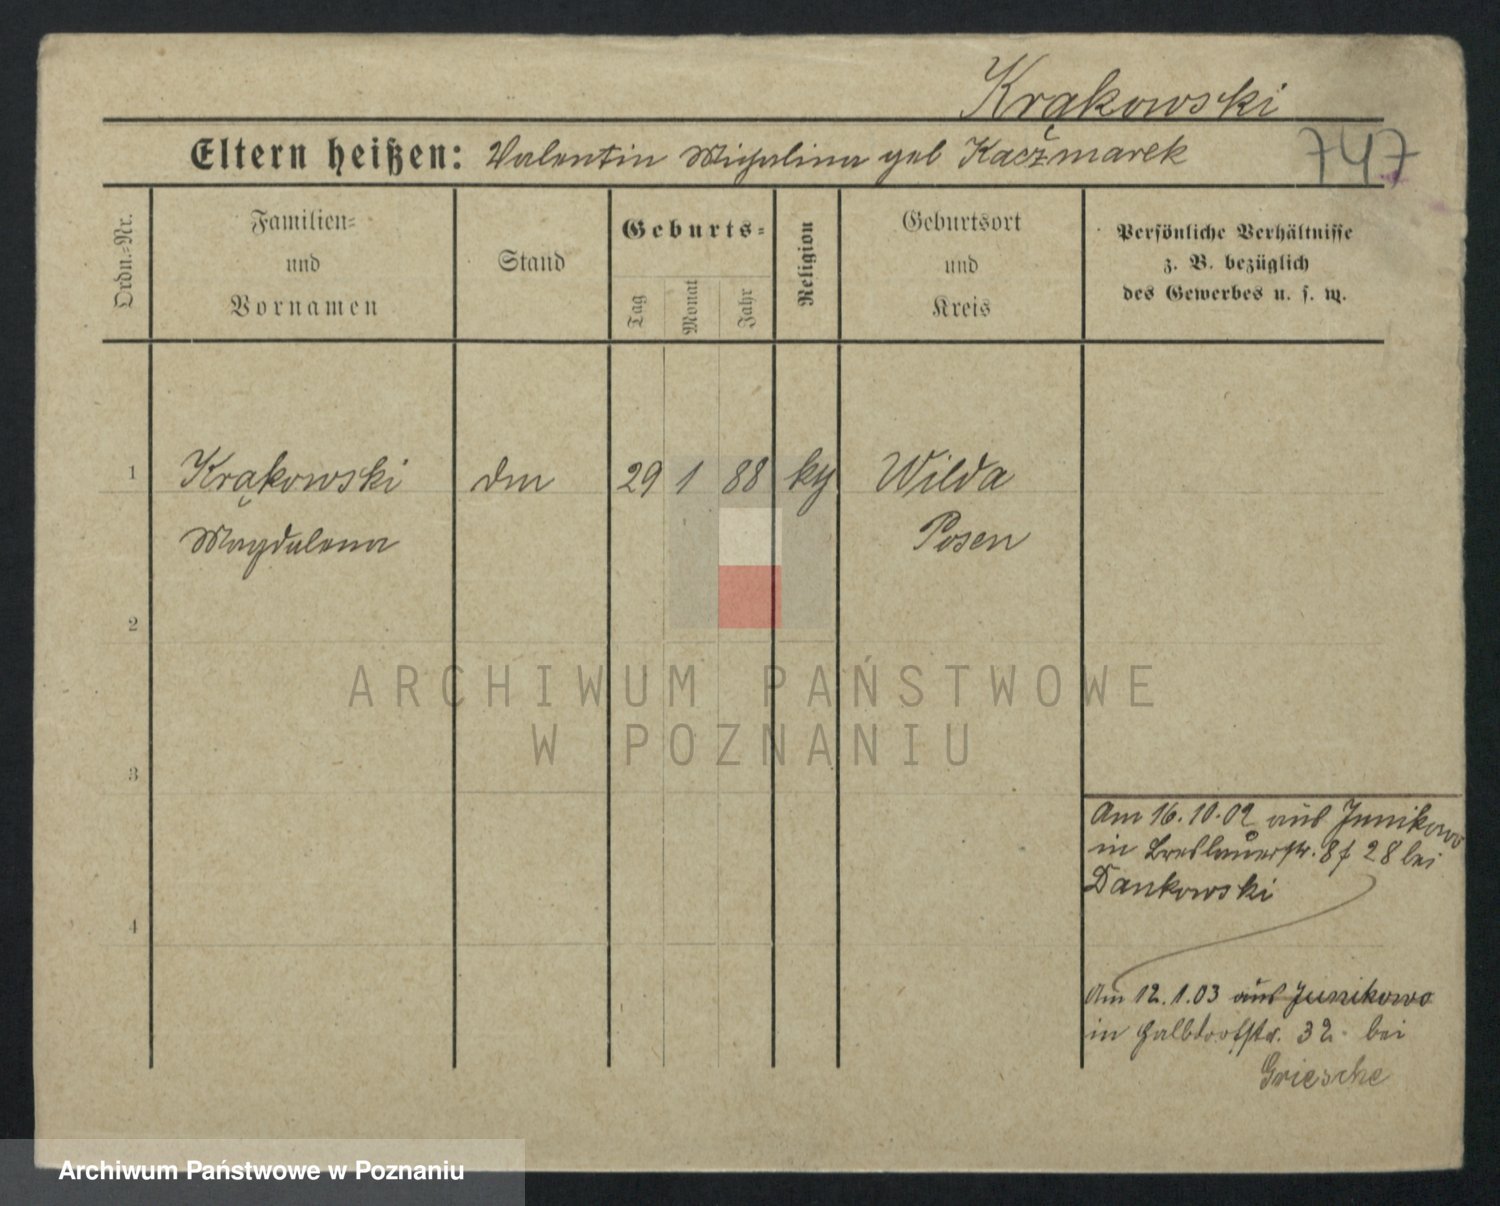 Krąkowski
Eltern heißen: Valentin Michalina geb Kaczmarek
747
Ordn.-Nr.
Familien-
und
Vornamen
Stand
Geburts-
Tag
Monat
Jahr
Religion
Geburtsort
und
Kreis
Persönliche Verhältnisse
z. B. bezüglich
des Gewerbes u. s. w.
1 Krąkowski 29 1 88 Wilda
Magdalena Posen
2
3
4
ARCHIWUM PAŃSTWOWE
W POZNANIU
Am 16.10.02 aus Junikowo
in Breslauerstr. 28 bei
Dankowski
Am 12.1.03 aus Junikowo
in Halbdorfstr. 32 bei
Griesche
Archiwum Państwowe w Poznaniu